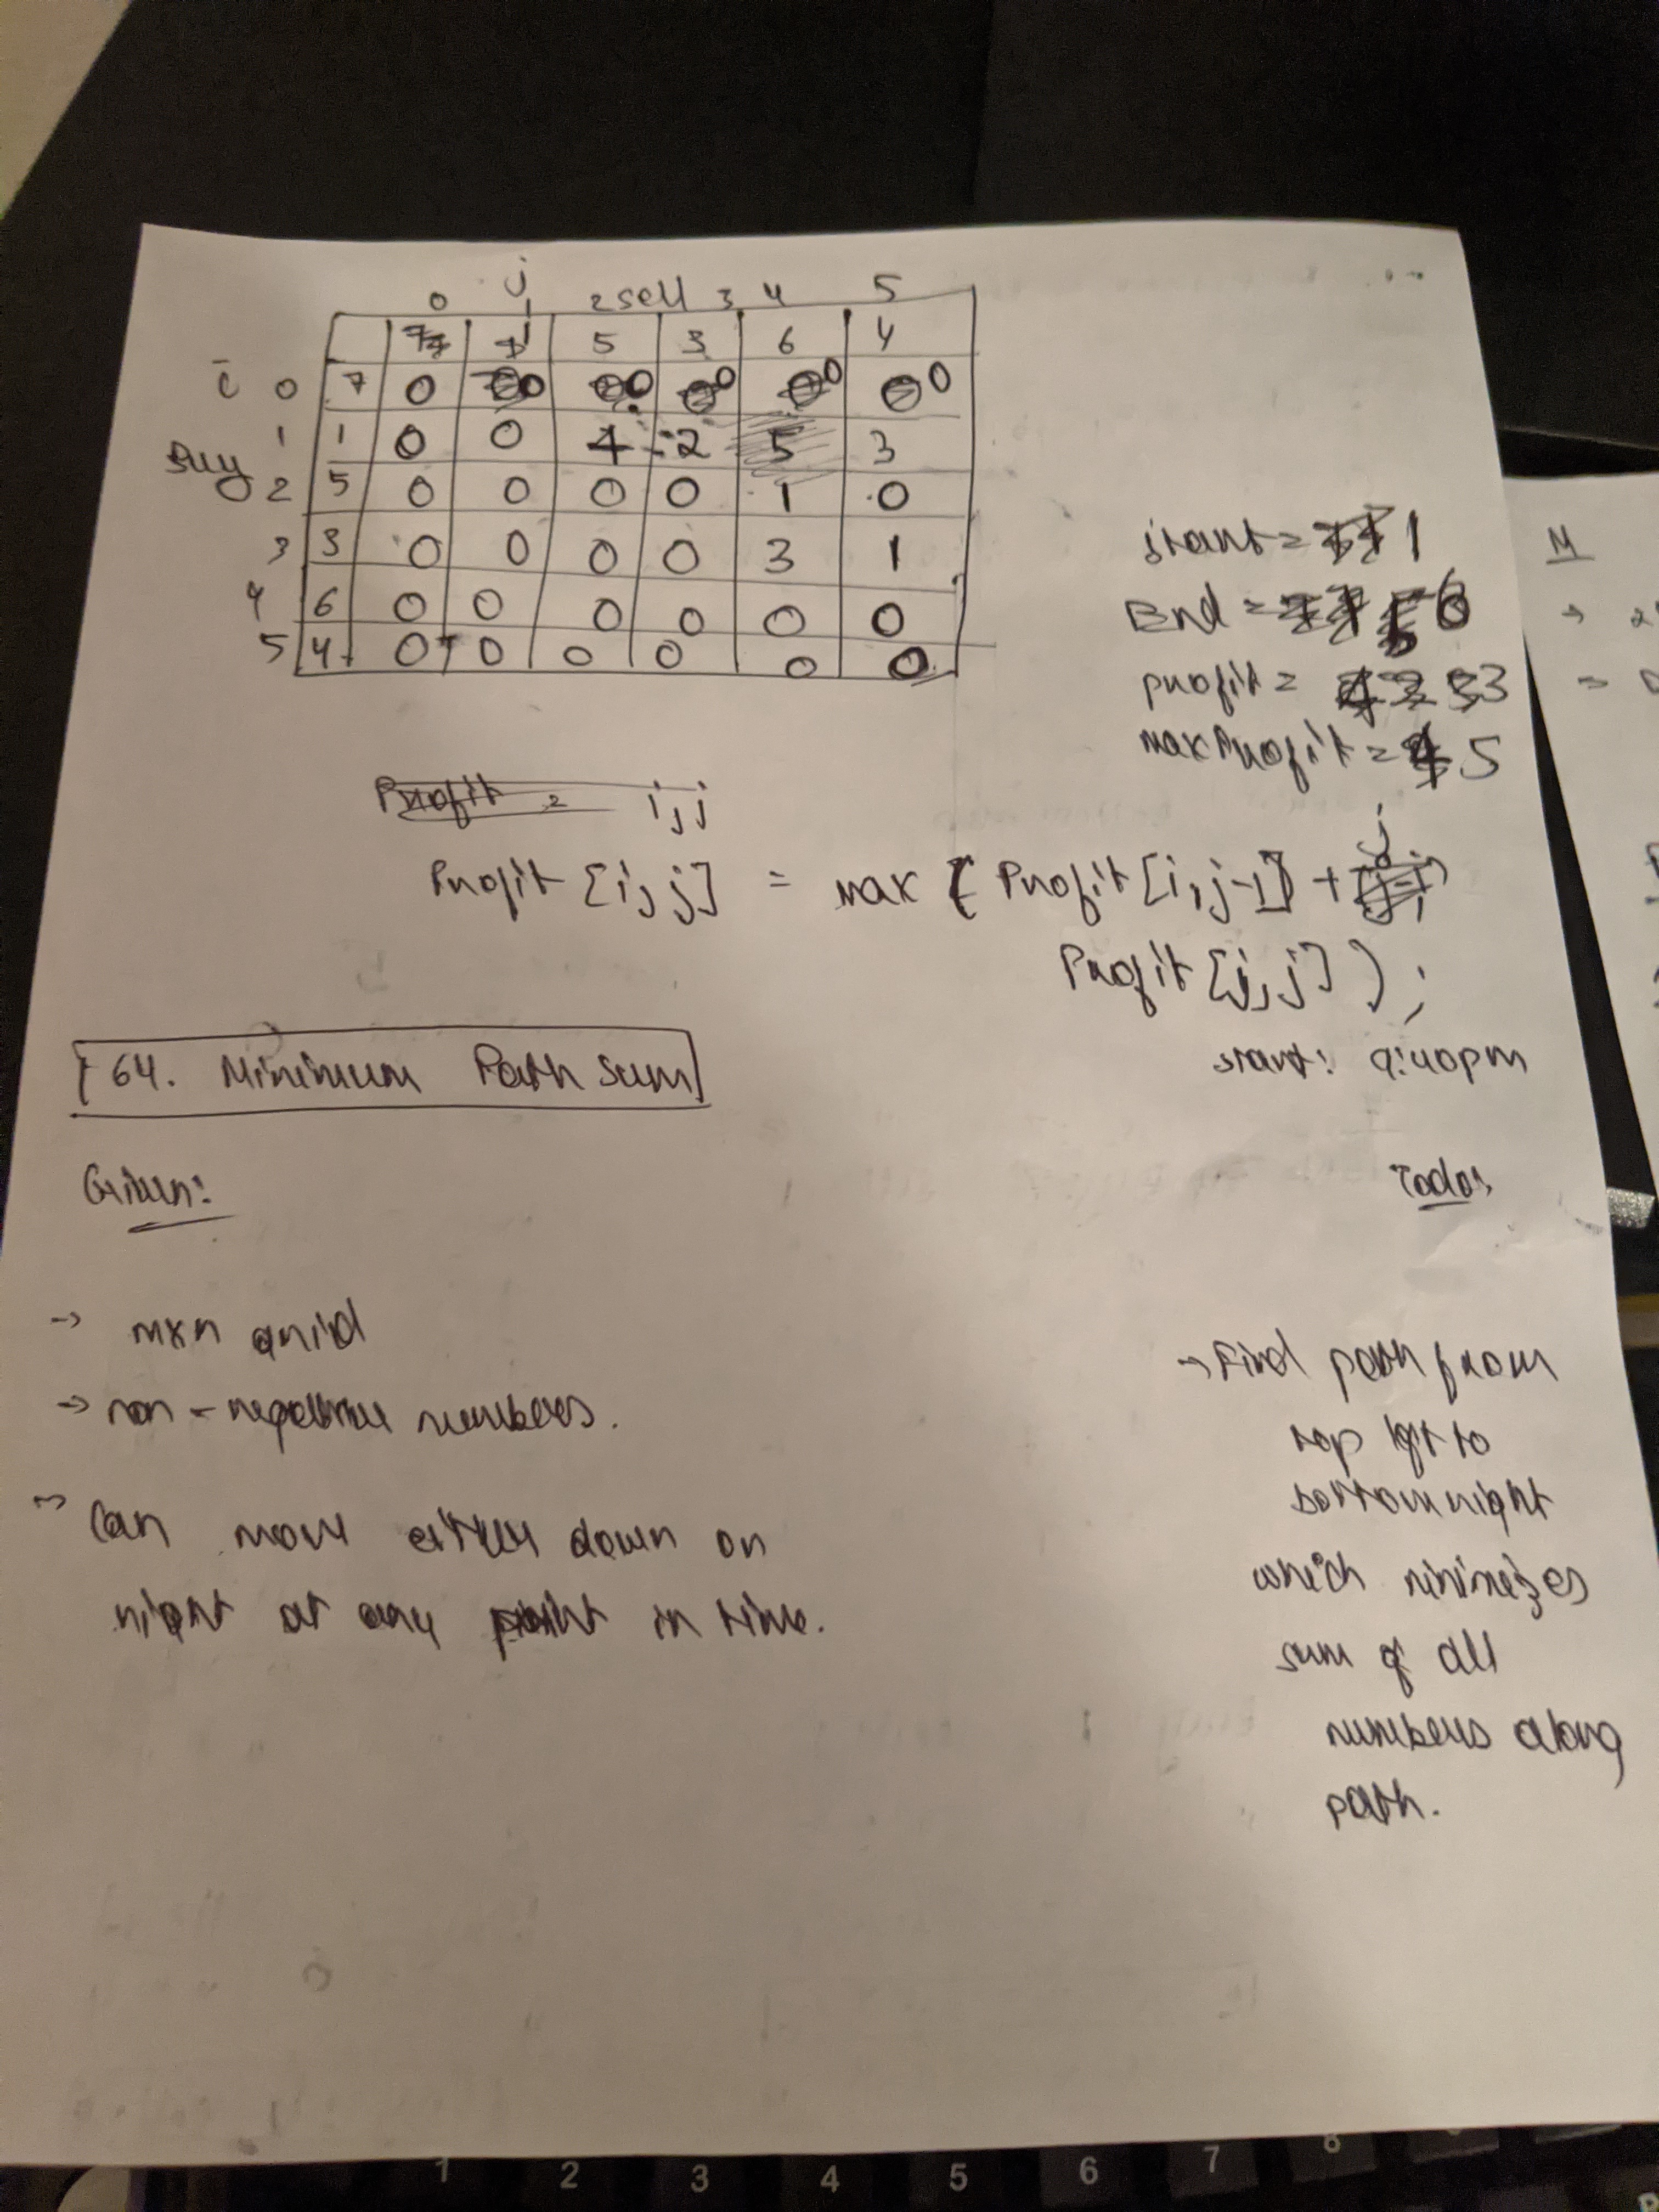 j
0 1 2 sell 3 4 5
7 1 5 3 6 4
i 0 7 0 0 0 0 0 0
1 1 0 0 4 2 5 3
Buy
2 5 0 0 0 0 1 0
3 3 0 0 0 0 3 1
4 6 0 0 0 0 0 0
5 4 0 0 0 0 0 0
start = 1
End = 6
profit = 3
maxProfit = 5
M
Profit = i,j
Profit [i,j] = max ( Profit [i,j-1] + j
Profit [j,j] ) ;
64. Minimum Path Sum
start: 9:40pm
Given:
Todos
→ mxn grid
→ non-negative numbers.
→ Can move either down or
right at any point in time.
→ Find path from
top left to
bottom right
which minimizes
sum of all
numbers along
path.
1 2 3 4 5 6 7 8